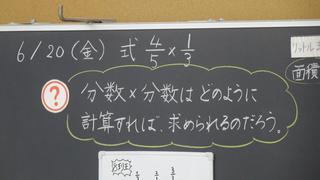 6/20(金) 式 4/5×1/3
面積
?
分数×分数は どのように
計算すれば、求められるのだろう。